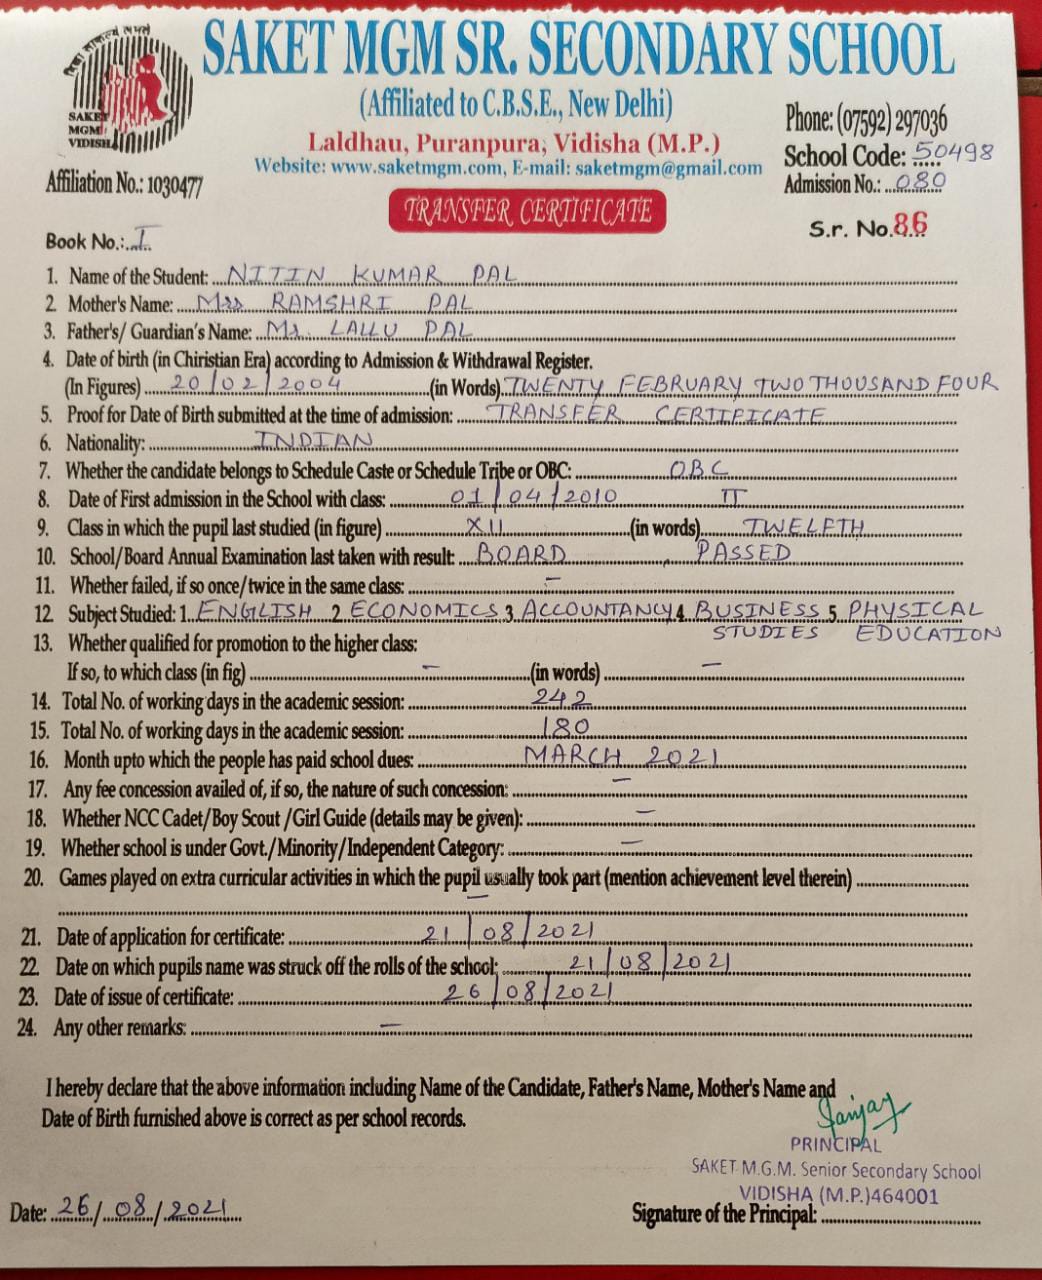 SAKET MGM SR. SECONDARY SCHOOL
(Affiliated to C.B.S.E., New Delhi)
Laldhau, Puranpura, Vidisha (M.P.)
Website: www.saketmgm.com, E-mail: saketmgm@gmail.com
SAKET
MGM
VIDISHA
Phone: (07592) 297036
School Code: 50498
Affiliation No.: 1030477
Admission No.: 080
TRANSFER CERTIFICATE
S.r. No. 86
Book No.: I
1. Name of the Student: NITIN KUMAR PAL
2. Mother's Name: Mrs RAMSHRI PAL
3. Father's/ Guardian's Name: Mr. LALLU PAL
4. Date of birth (in Chiristian Era) according to Admission & Withdrawal Register.
(In Figures) 20/02/2004 (in Words) TWENTY FEBRUARY TWO THOUSAND FOUR
5. Proof for Date of Birth submitted at the time of admission: TRANSFER CERTIFICATE
6. Nationality: INDIAN
7. Whether the candidate belongs to Schedule Caste or Schedule Tribe or OBC: OBC
8. Date of First admission in the School with class: 01/04/2010 II
9. Class in which the pupil last studied (in figure) XII (in words) TWELFTH
10. School/Board Annual Examination last taken with result: BOARD, PASSED
11. Whether failed, if so once/twice in the same class: –
12. Subject Studied: 1. ENGLISH 2. ECONOMICS 3. ACCOUNTANCY 4. BUSINESS 5. PHYSICAL
STUDIES EDUCATION
13. Whether qualified for promotion to the higher class:
If so, to which class (in fig) – (in words) –
14. Total No. of working days in the academic session: 242
15. Total No. of working days in the academic session: 180
16. Month upto which the people has paid school dues: MARCH 2021
17. Any fee concession availed of, if so, the nature of such concession: –
18. Whether NCC Cadet/Boy Scout /Girl Guide (details may be given): –
19. Whether school is under Govt./Minority/Independent Category: –
20. Games played on extra curricular activities in which the pupil usually took part (mention achievement level therein)
–
21. Date of application for certificate: 21/08/2021
22. Date on which pupils name was struck off the rolls of the school: 21/08/2021
23. Date of issue of certificate: 26/08/2021
24. Any other remarks: –
I hereby declare that the above information including Name of the Candidate, Father's Name, Mother's Name and
Date of Birth furnished above is correct as per school records.
Sanjay
PRINCIPAL
SAKET M.G.M. Senior Secondary School
VIDISHA (M.P.)464001
Date: 26/08/2021
Signature of the Principal: